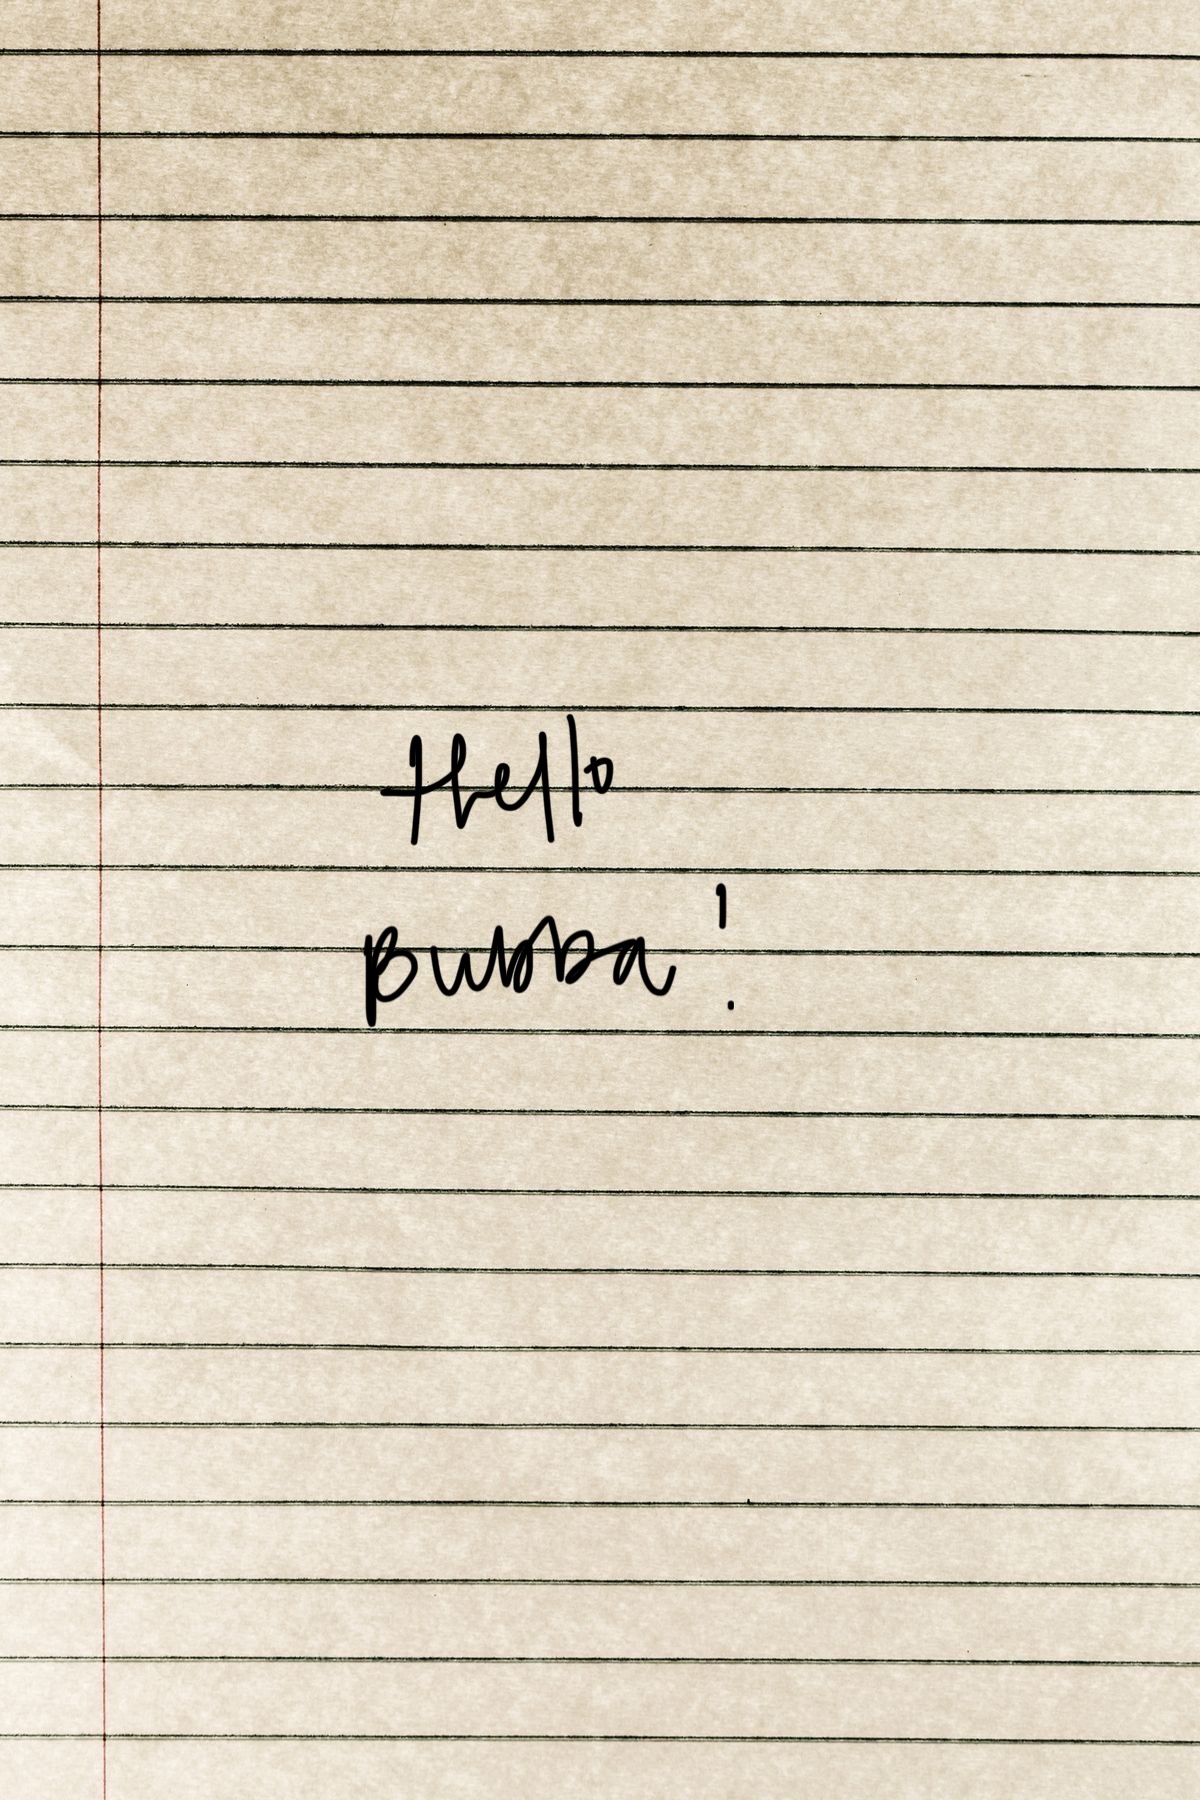 Hello
Bubba!